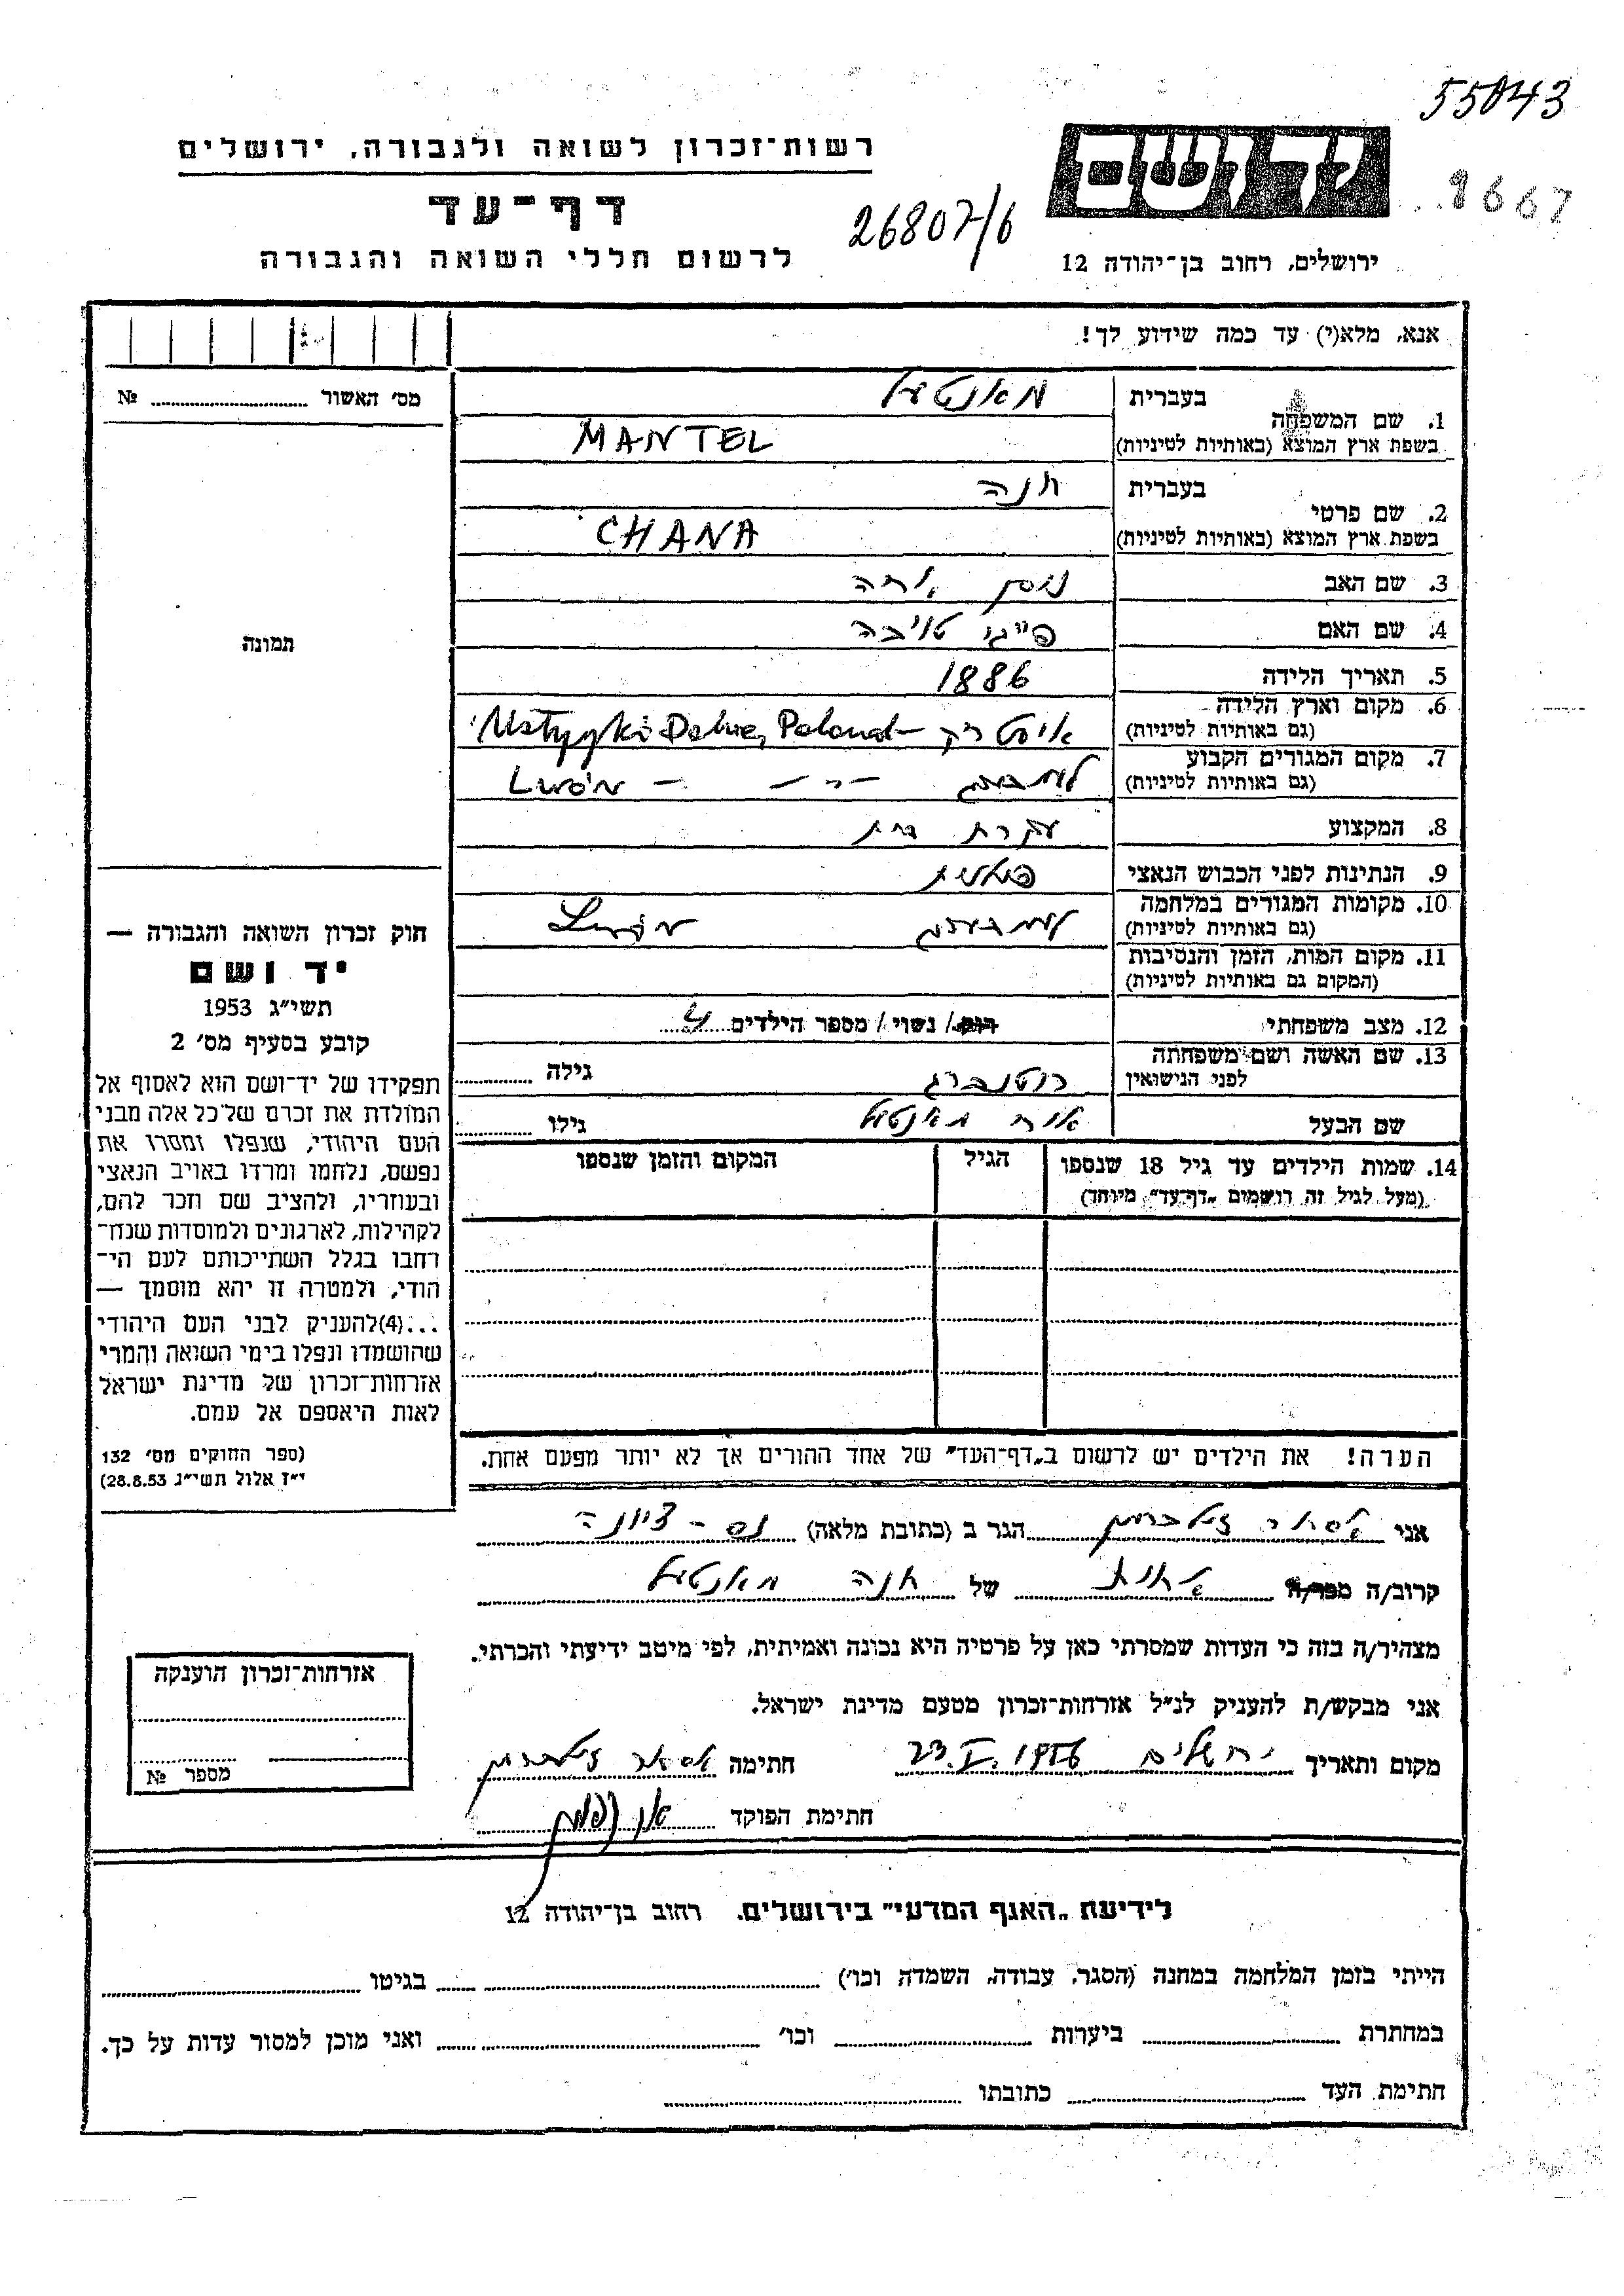 55843
רשות־זכרון לשואה ולגבורה, ירושלים
יד ושם
9667
דף־עד
26807/6
לרשום חללי השואה והגבורה
ירושלים, רחוב בן־יהודה 12
אנא, מלא(י) עד כמה שידוע לך!
מס׳ האשור № 
1. שם המשפחה
בעברית מאנטעל
בשפת ארץ המוצא (באותיות לטיניות) MANTEL
2. שם פרטי
בעברית חנה
בשפת ארץ המוצא (באותיות לטיניות) CHANA
3. שם האב
4. שם האם פייגי טויבה
5. תאריך הלידה 1886
6. מקום וארץ הלידה
(גם באותיות לטיניות) Dolne, Poland
7. מקום המגורים הקבוע
(גם באותיות לטיניות) למברג - Lwów
8. המקצוע עקרת בית
9. הנתינות לפני הכבוש הנאצי פולנית
10. מקומות המגורים במלחמה
(גם באותיות לטיניות) למברג Lwów
11. מקום המות, הזמן והנסיבות
(המקום גם באותיות לטיניות)
12. מצב משפחתי רוק/ נשוי / מספר הילדים 4
13. שם האשה ושם משפחתה
לפני הנישואין רוטנברג גילה
שם הבעל אורי מאנטעל גילו
14. שמות הילדים עד גיל 18 שנספו
(מעל לגיל זה רושמים „דף־עד” מיוחד)
הגיל
המקום והזמן שנספו
הערה! את הילדים יש לרשום ב„דף־העד” של אחד ההורים אך לא יותר מפעם אחת.
תמונה
חוק זכרון השואה והגבורה —
יד ושם
תשי״ג 1953
קובע בסעיף מס׳ 2
תפקידו של יד־ושם הוא לאסוף אל
המולדת את זכרם של כל אלה מבני
העם היהודי, שנפלו ומסרו את
נפשם, נלחמו ומרדו באויב הנאצי
ובעוזריו, ולהציב שם וזכר להם,
לקהילות, לארגונים ולמוסדות שנח־
רחבו בגלל השתייכותם לעם הי־
הודי, ולמטרה זו יהא מוסמך —
...(4)להעניק לבני העם היהודי
שהושמדו ונפלו בימי השואה והמרי
אזרחות־זכרון של מדינת ישראל
לאות היאספם אל עמם.
(ספר החוקים מס׳ 132
י״ז אלול תשי״ג 28.8.53)
אני אסתר זילברמן הגר ב (כתובת מלאה) נס - ציונה
קרוב/ה מכר/ה אחות של חנה מאנטעל
מצהיר/ה בזה כי העדות שמסרתי כאן על פרטיה היא נכונה ואמיתית, לפי מיטב ידיעתי והכרתי.
אני מבקש/ת להעניק לנ״ל אזרחות־זכרון מטעם מדינת ישראל.
מקום ותאריך ירושלים 23.V.1956 חתימה אסתר זילברמן
חתימת הפוקד
אזרחות־זכרון הוענקה
מספר №
לידיעת „האגף המדעי” בירושלים. רחוב בן־יהודה 12
הייתי בזמן המלחמה במחנה (הסגר, עבודה, השמדה וכו׳) בגיטו
במחתרת ביערות וכו׳ ואני מוכן למסור עדות על כך.
חתימת העד כתובתו